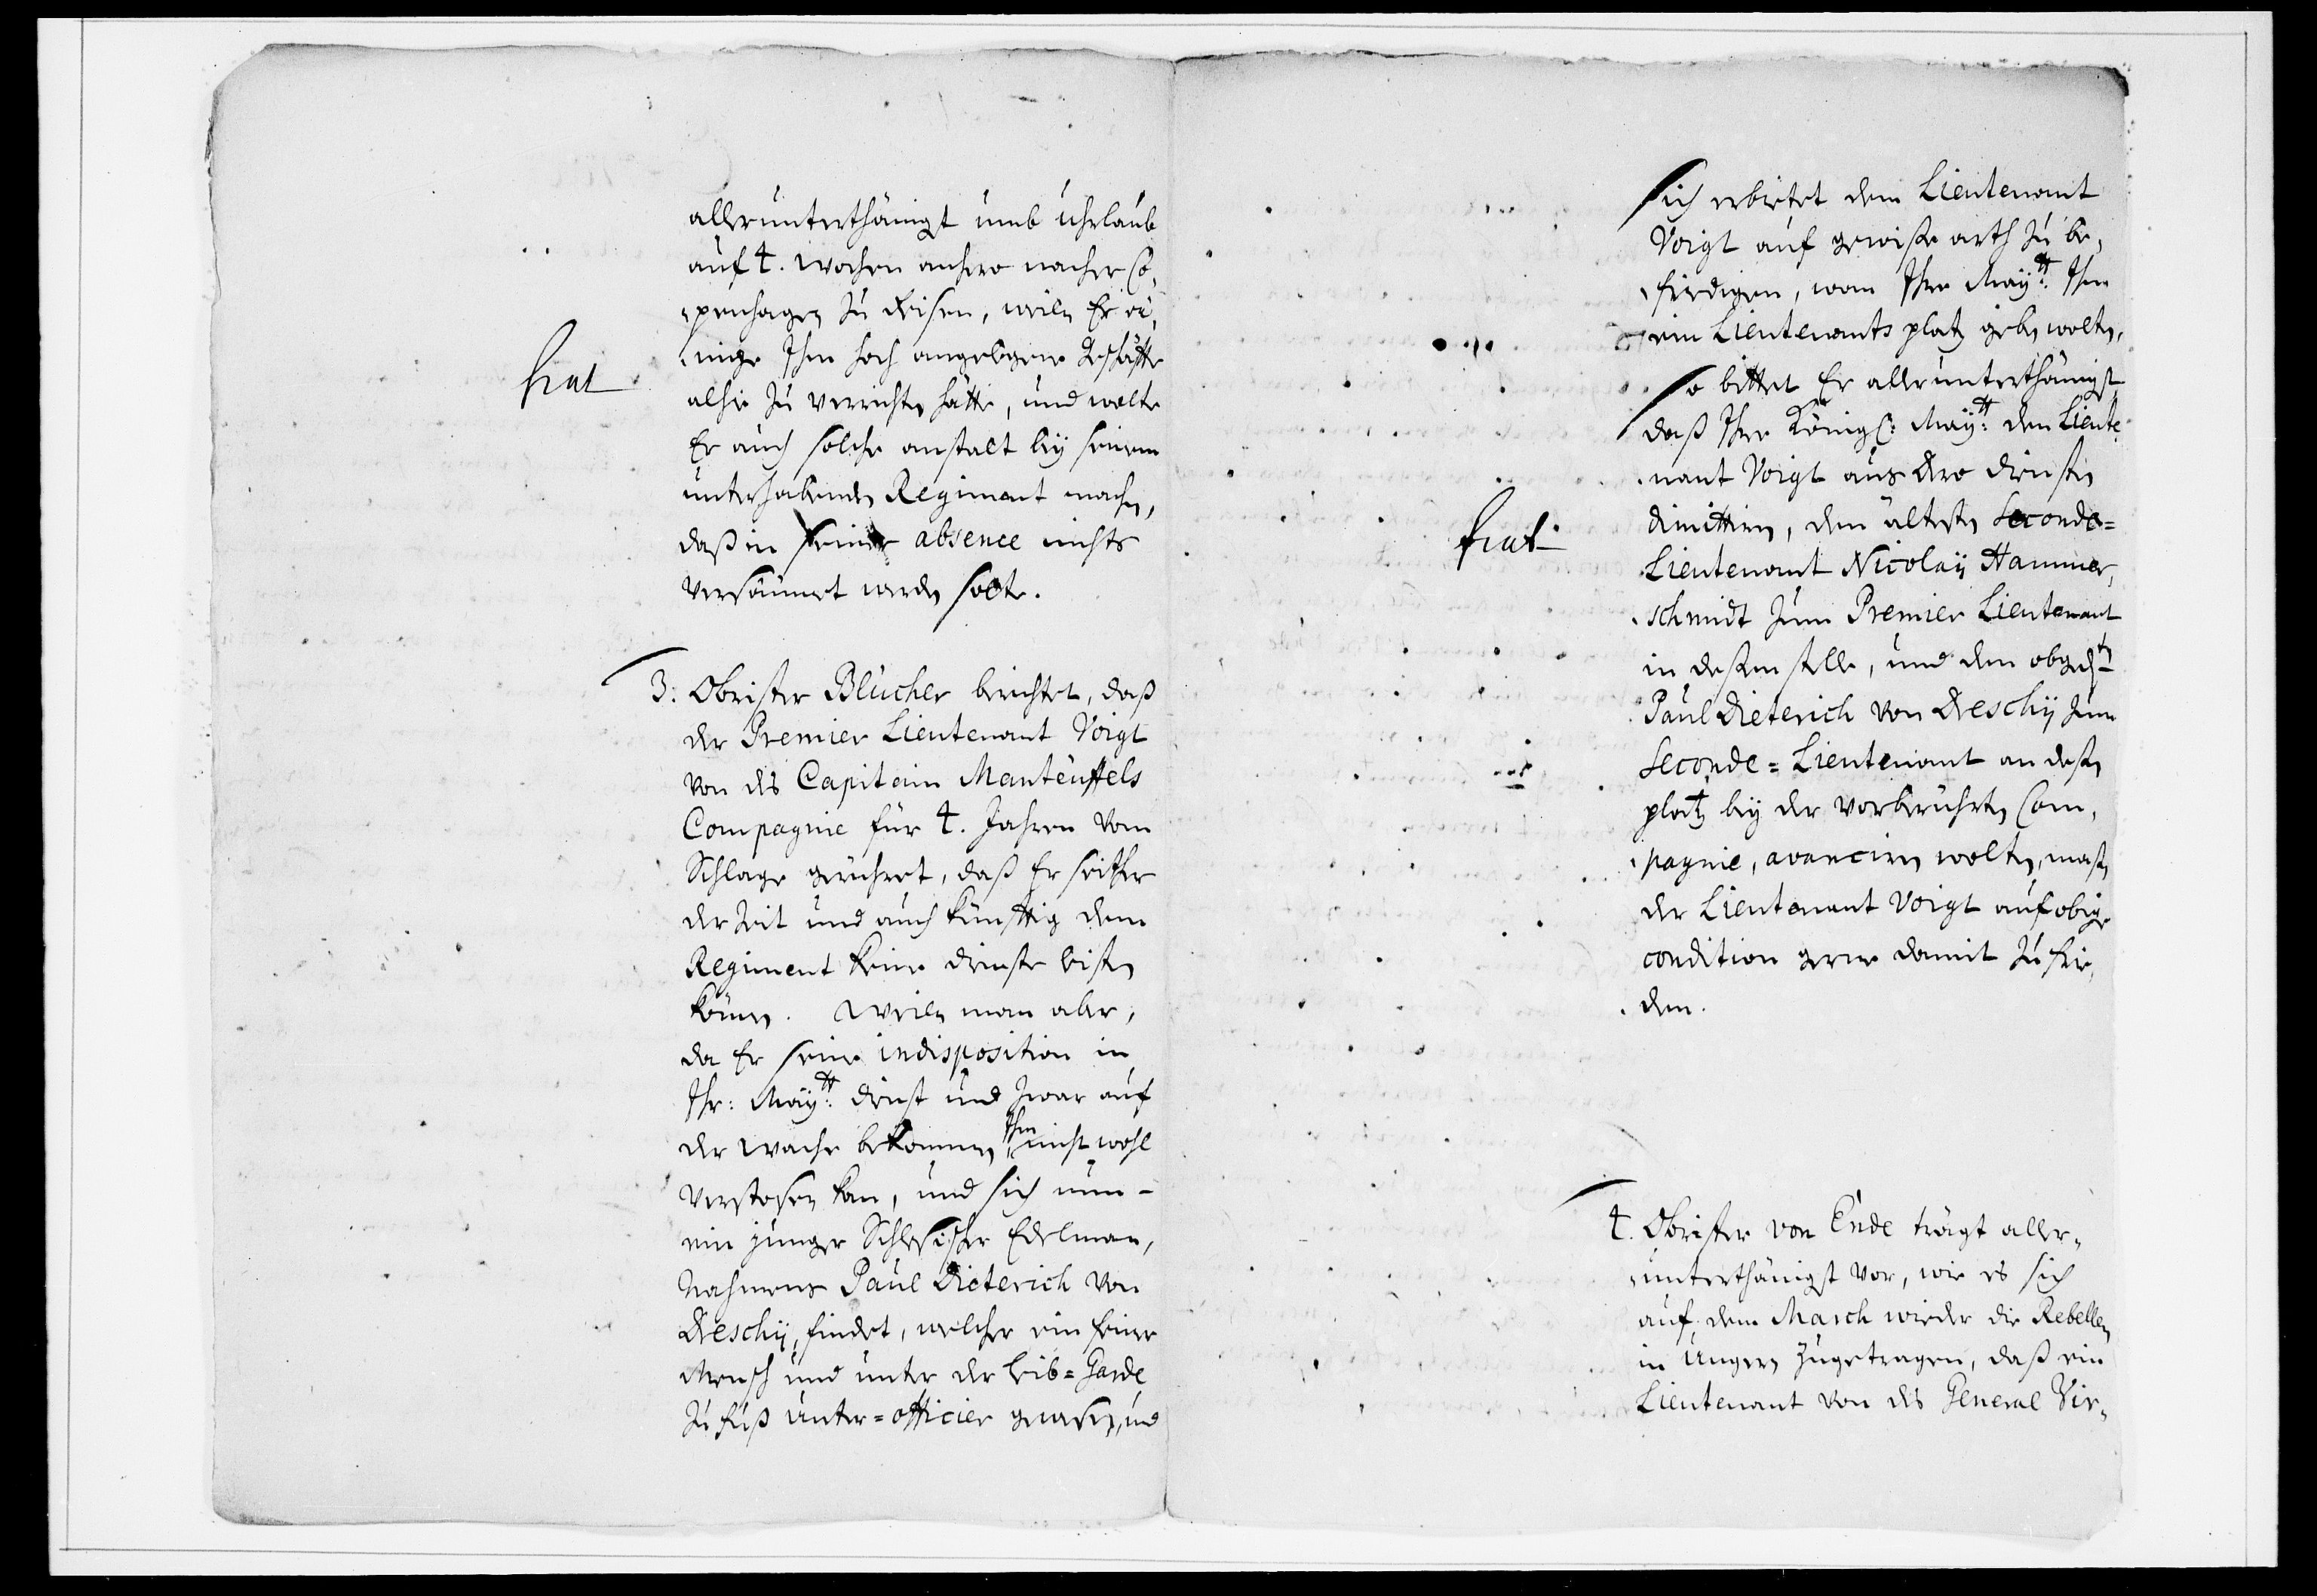 allerunterthänigst umb uhrlaub
auf 4. Wochen anhero nacher Co-
penhagen zu reisen, weiln Er ei-
nige Ihm hoch angelegene Geschäffte
fiat
alhie zu verrichten hätte, und wolte
Er auch solche anstalt beÿ seinem
unterhabenden Regiment machen,
daß in seiner absence nichts
versäumet werden solte.
3. Obrister Blücher berichtet, daß
der Premier Lieutenant Voigt
von des Capitain Manteuffels
Compagnie für 4. Jahren vom
Schlage gerühret, daß Er seither
der Zeit und auch künfftig dem
Regiment keine dienste leisten
können. Weiln man aber,
da Er seine indisposition in
Ihr: Maÿtt: dienst und zwar auf
der Wache bekommen, Ihn nicht wohl
verstoßen kan, und sich nun-
ein junger Schlesischer Edelman,
Nahmens Paul Dieterich von
Dreschÿ, findet, welcher ein feiner
Mensch und unter der Leib-Garde
zu fuß Unter-officier gewesen, und
sich erbietet dem Lieutenant
Voigt auf gewiße arth zu be-
friedigen, wan Ihre Maÿtt: Ihm
ein Lieutenants platz geben wolten,
So bittet Er allerunterthänigst,
daß Ihre Königl: Maÿtt: den Lieute-
nant Voigt aus dero diensten
dimittiren, den ältesten Seconde-
fiat
Lieutenant Nicolaÿ Hammer-
schmidt zum Premier Lieutenant
in deßen stelle, und den obgedten
Paul Dieterich von Dreschÿ zum
Seconde-Lieutenant an deßen
platz beÿ der vorberührten Com-
pagnie, avanciren wolten, maßen
der Lieutenant Voigt auf obige
condition gerne damit zu frie-
den.
4. Obrister von Ende trägt aller-
unterthänigst vor, wie es sich
auf dem March wieder die Rebellen
in Ungern zugetragen, daß ein
Lieutenant von des General Vir-